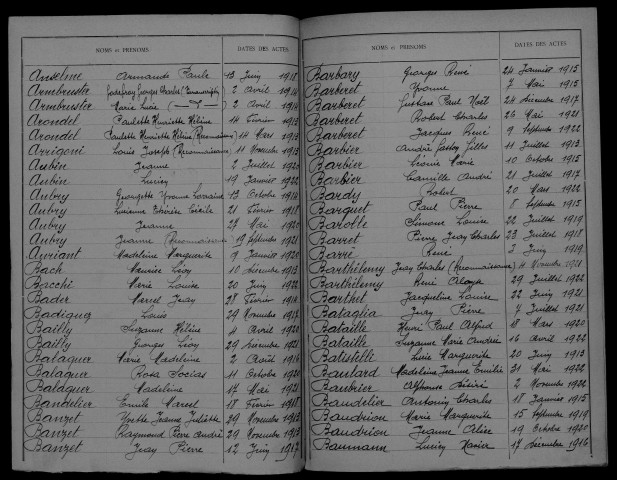 NOMS et PRÉNOMS DATES DES ACTES
Anselme Armande Paule 13 Juin 1918
Armbruster Godefroy Georges Charles 2 Avril 1914
Armbruster Marie Luie 2 Avril 1914
Arondel Paulette Henriette Hélène 14 Février 1913
Arondel Paulette Henriette Hélène (Reconnaissance) 14 Mars 1913
Arrigoni Louis Joseph (Reconnaissance) 11 Novembre 1913
Aubin Jeanne 2 Juillet 1920
Aubin Lucien 19 Janvier 1922
Aubry Georgette Yvonne Lorraine 13 Octobre 1914
Aubry Lucienne Thérèse Cécile 21 Février 1918
Aubry Jeanne 27 Mai 1920
Aubry Jeanne Reconnaissance 19 Septembre 1921
Auriant Madeleine Marguerite 9 Janvier 1920
Bach Maurice Léon 10 Décembre 1913
Bacchi Marie Louise 20 Juin 1922
Bader Marcel Jean 28 Février 1914
Badigué Louis 29 Novembre 1917
Bailly Suzanne Hélène 4 Avril 1920
Bailly Georges Léon 29 Décembre 1921
Balaguer Marie Madeleine 2 Août 1916
Balaguer Rosa Socias 11 Octobre 1920
Balaguer Madeleine 17 Mai 1921
Bandelier Emile Marcel 18 Février 1918
Banzet Yvette Jeanne Juliette 29 Novembre 1913
Banzet Raymond Pierre André 29 Novembre 1913
Banzet Jean Pierre 12 Juin 1917
NOMS et PRÉNOMS DATES DES ACTES
Barbary Georges René 24 Janvier 1915
Barberet Yvonne 7 Mai 1915
Barberet Gustave Paul Noël 24 Décembre 1917
Barberet Robert Charles 26 Mai 1921
Barberet Jacques René 9 Septembre 1922
Barbier André Gilles 11 Juillet 1913
Barbier Léonie Marie 10 Octobre 1915
Barbier Camille André 21 Juillet 1917
Bardy Robert 20 Mars 1922
Barquet Paul Pierre 8 Septembre 1915
Barotte Simone Louise 22 Juillet 1919
Barret Pierre Jean Charles 23 Juillet 1918
Barri René 2 Juin 1919
Barthélemy Jean Charles (Reconnaissance) 14 Novembre 1921
Barthélemy René Aloyse 29 Juillet 1922
Barthet Jacqueline Louise 22 Juin 1921
Bataglia Jean Pierre 7 Juillet 1921
Bataille Henri Paul Alfred 18 Mars 1920
Bataille Suzanne Marie Andrée 16 Avril 1922
Batistelli Lucie Marguerite 20 Juin 1913
Baulard Madeleine Jeanne Emilie 31 Mai 1922
Baubrier Alphonse Désiré 2 Novembre 1922
Baudelier Antonin Charles 18 Janvier 1915
Baudrion Marie Marguerite 15 Septembre 1919
Baudrion Jeanne Alice 19 Octobre 1920
Baumann Lucien Xavier 17 Décembre 1916